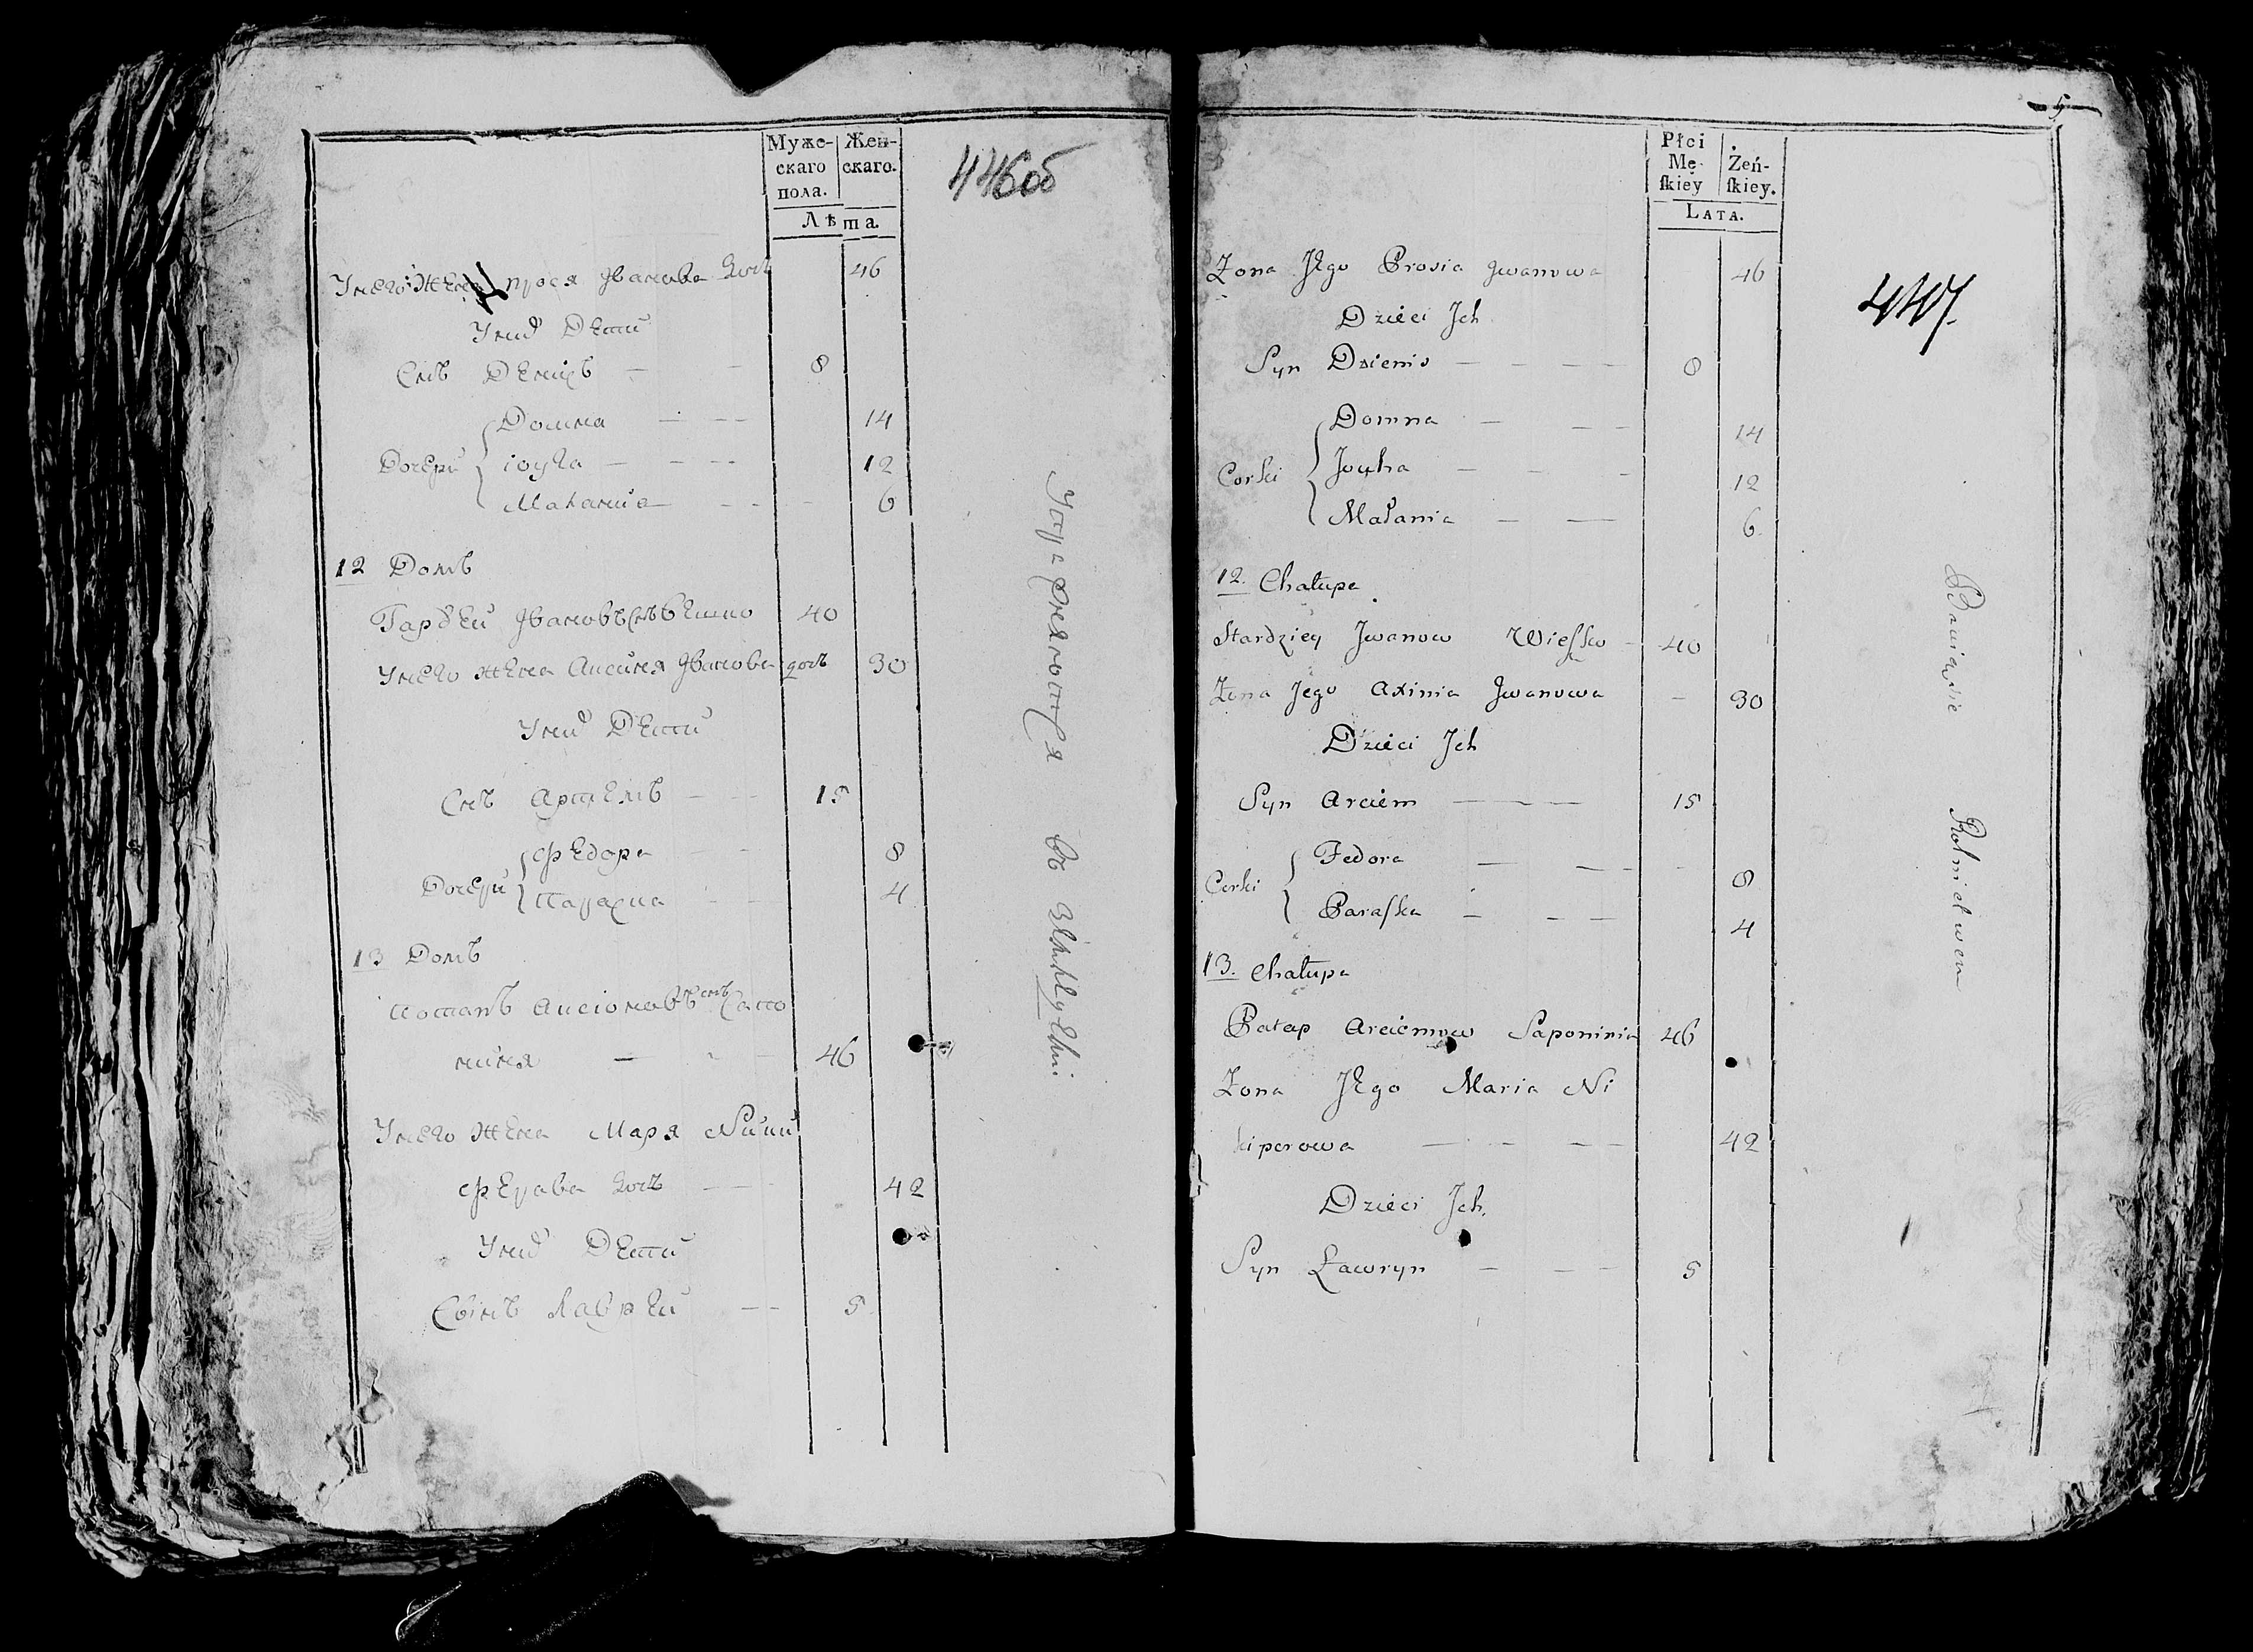 Муже-
скаго
пола.
Жен-
скаго.
Лѣта.
446об
Унего Жена прося Ивамова доч 46
Уних Дети
Снъ Денисъ — — 8
Дочери
Домна — — — 14
12
Малания — — — 6
12 Домъ
Гардей Ивановъ снъ 40
Унего жена Аксиня Иванова дочь 30
Уних Дети
Снъ Артемъ — — 15
Дочери
Федора — — 8
Параска — — 4
13 Домъ
Потапъ снъ Сапо
ниня — - 46
Унего Жена Маря Ники
ферава дочь — — 42
Уних Дети
Сынъ Лаврен — — 5
въ
5
Płci
Mę-
skiey
Żeń-
skiey.
LATA.
447.
Zona Jego Prosia Jwanowa 46
Dzieci Jch
Syn Dzienis — — — — 8
Corki
Domna — — — 14
Jouha — — — 12
Małania — — 6
12. Chałupa
Hardziey Jwanow Wieszko — 40
Zona Jego Axinia Jwanowa — 30
Dzieci Jch
Syn Arciem — — — 15
Corki
Fedora — — — — 8
Paraska — — — 4
13. Chałupa
Patap Arciemow Saponinia 46
Zona Jego Maria Ni
kiperowa — — — — 42
Dzieci Jch.
Syn Ławryn — — — 5
Rolnictwem